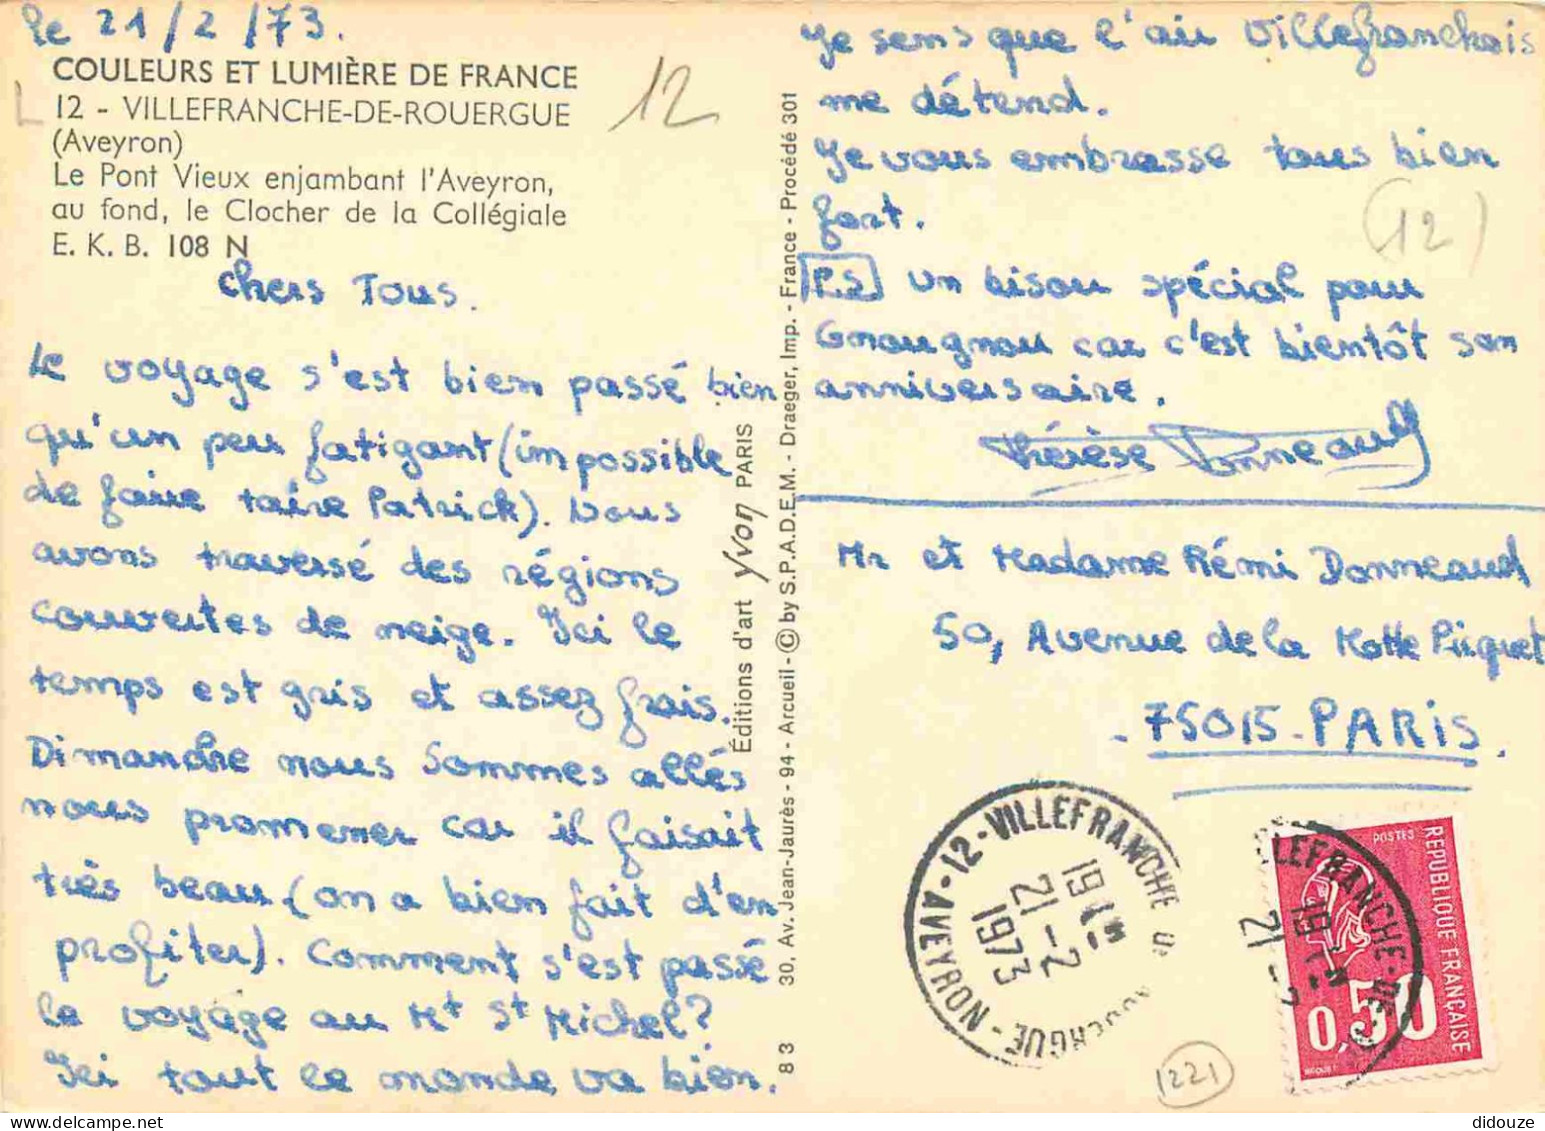 le 21/2/73.
COULEURS ET LUMIÈRE DE FRANCE
12 - VILLEFRANCHE-DE-ROUERGUE
(Aveyron)
Le Pont Vieux enjambant l'Aveyron,
au fond, le Clocher de la Collégiale
E. K. B. 108 N
12
Chers Tous.
Le voyage s'est bien passé bien
qu'un peu fatigant (impossible
de faire taire Patrick). Nous
avons traversé des régions
couvertes de neige. Ici le
temps est gris et assez frais.
Dimanche nous sommes allés
nous promener car il faisait
très beau (on a bien fait d'en
profiter). Comment s'est passé
le voyage au Mt St Michel?
Ici tout le monde va bien.
Éditions d'art Yvon PARIS
83 30, Av. Jean-Jaurès - 94 - Arcueil - © by S.P.A.D.E.M. - Draeger, Imp. - France - Procédé 301
Je sens que l'air Villefranchois
me détend.
Je vous embrasse tous bien
fort.
(12)
P.S Un bisou spécial pour
Gnougnou car c'est bientôt son
anniversaire.
Thérèse Donneaud
Mr et Madame Rémi Donneaud
50, Avenue de la Motte Picquet
- 75015 - PARIS.
12 - VILLEFRANCHE DE ROUERGUE - AVEYRON
19H
21-2
1973
LLEFRANCHE-DE-
19H
21-2
POSTES
REPUBLIQUE FRANÇAISE
0,50
1221
didouze